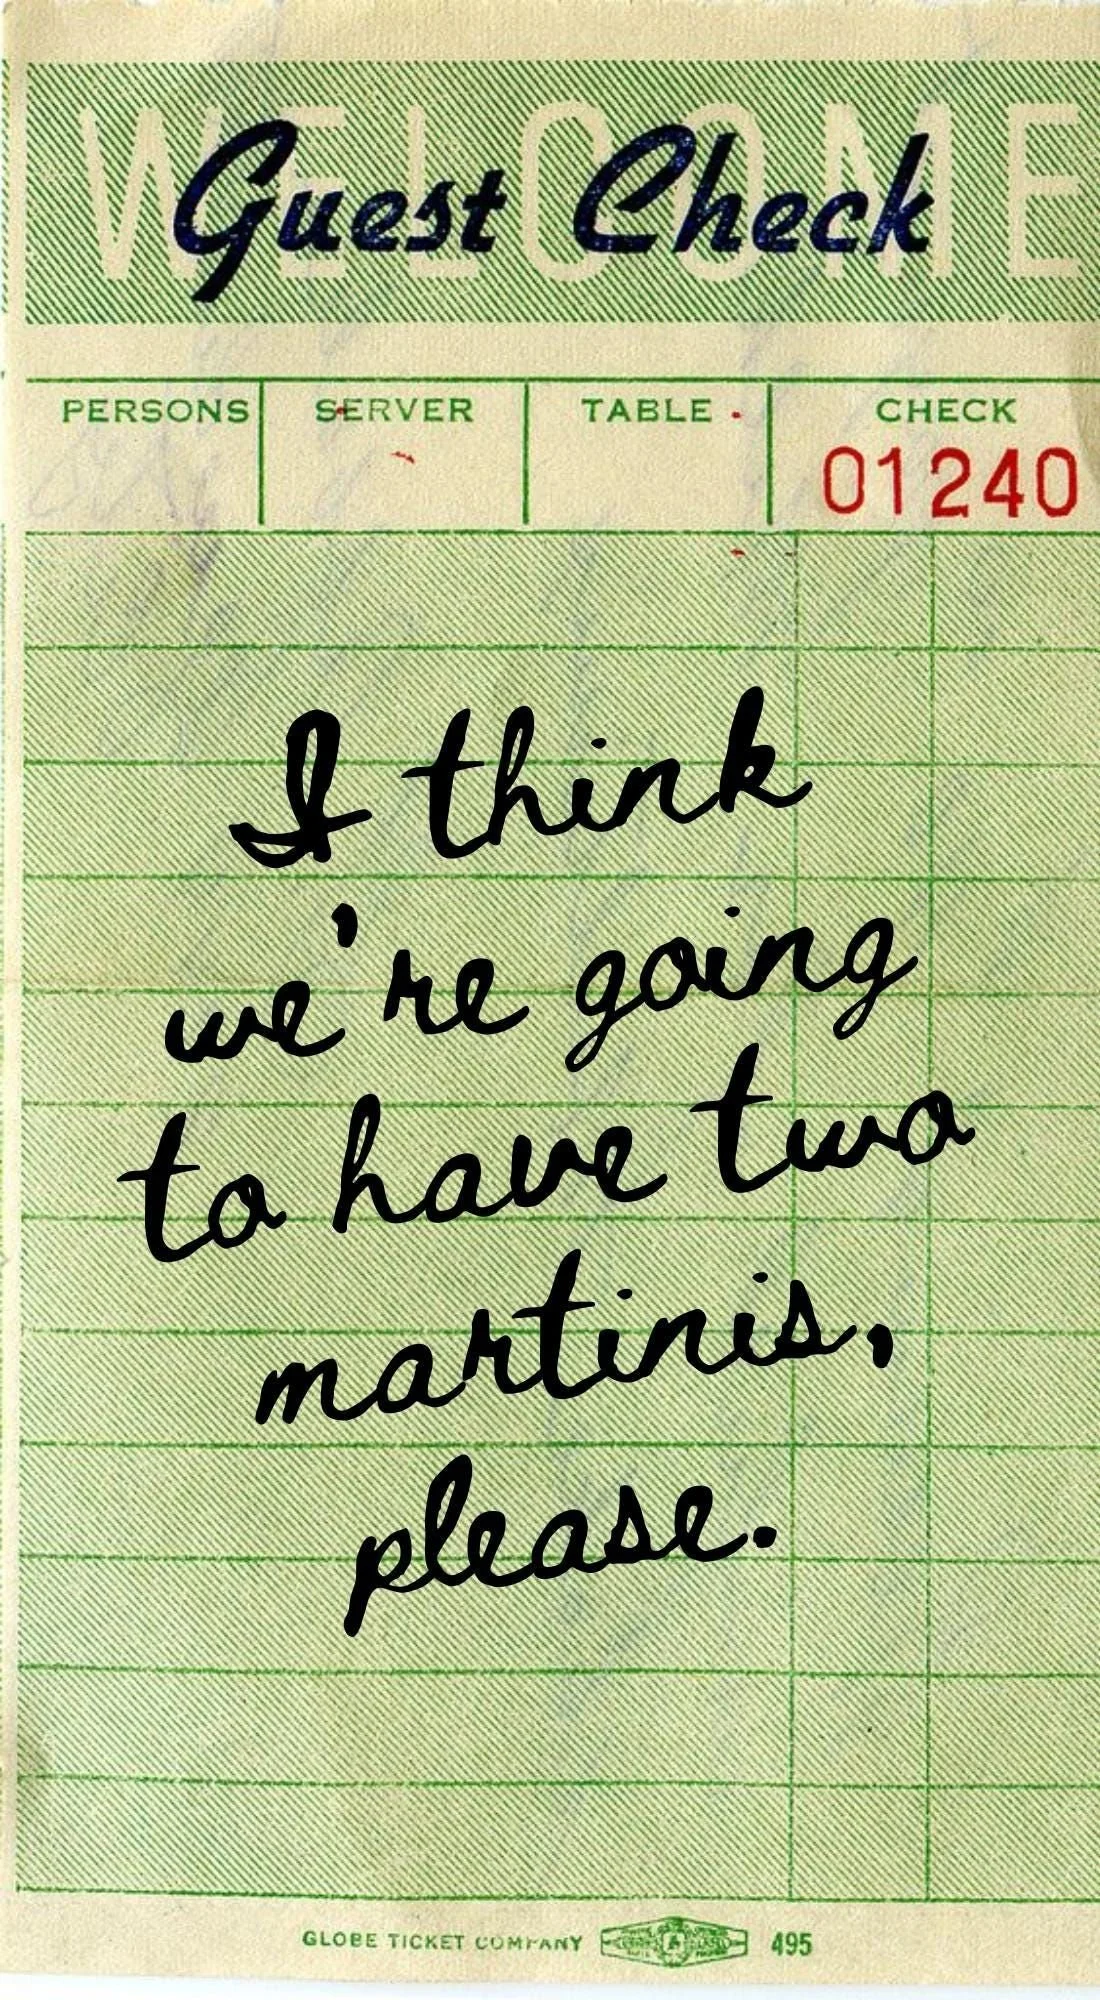 WELCOME
Guest Check
PERSONS SERVER TABLE CHECK
01240
I think
we're going
to have two
martinis,
please.
GLOBE TICKET COMPANY 495